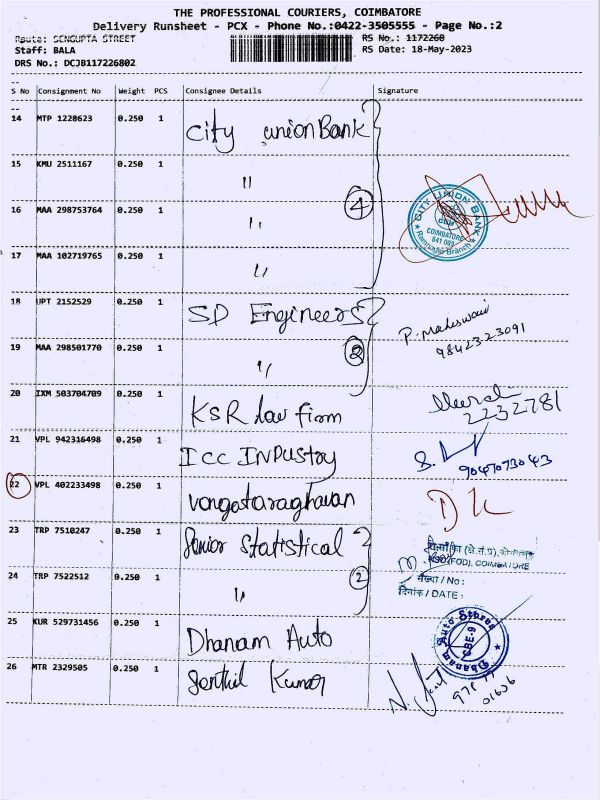 THE PROFESSIONAL COURIERS, COIMBATORE
Delivery Runsheet - PCX - Phone No.:0422-3505555 - Page No.:2
Route: SENGUPTA STREET
RS No.: 1172268
Staff: BALA
RS Date: 18-May-2023
DRS No.: DCJB117226802
S No Consignment No Weight PCS Consignee Details Signature
14 MTP 1228623 0.250 1 City union Bank
15 KMU 2511167 0.250 1 "
16 MAA 298753764 0.250 1 " 4
CITY UNION BANK
COIMBATORE
641 009
Ramnagar Branch
17 MAA 102719765 0.250 1 "
18 UPT 2152529 0.250 1 SD Engineers
P. Maheswari
98423 23091
19 MAA 298501770 0.250 1 " 2
20 IXM 503704709 0.250 1 KSR law firm
2232781
21 VPL 942316498 0.250 1 ICC INDUSTRY
9047073043
22 VPL 402233498 0.250 1 vengataraghavan
23 TRP 7510247 0.250 1 Senior Statistical
(FOD), COIMBATORE
24 TRP 7522512 0.250 1 " 2
संख्या / No :
दिनांक / DATE :
25 KUR 529731456 0.250 1 Dhanam Auto
Dhanam Auto Stores
CBE-9
26 MTR 2329505 0.250 1 Senthil Kumar